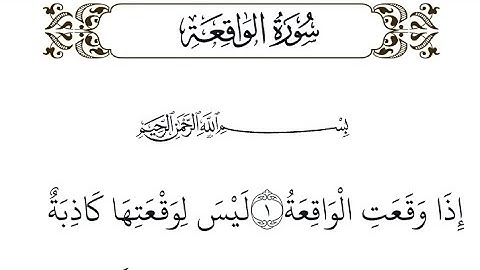 سُورَةُ الوَاقِعَة
بِسْمِ اللَّهِ الرَّحْمَنِ الرَّحِيمِ
إِذَا وَقَعَتِ الْوَاقِعَةُ ۝١ لَيْسَ لِوَقْعَتِهَا كَاذِبَةٌ